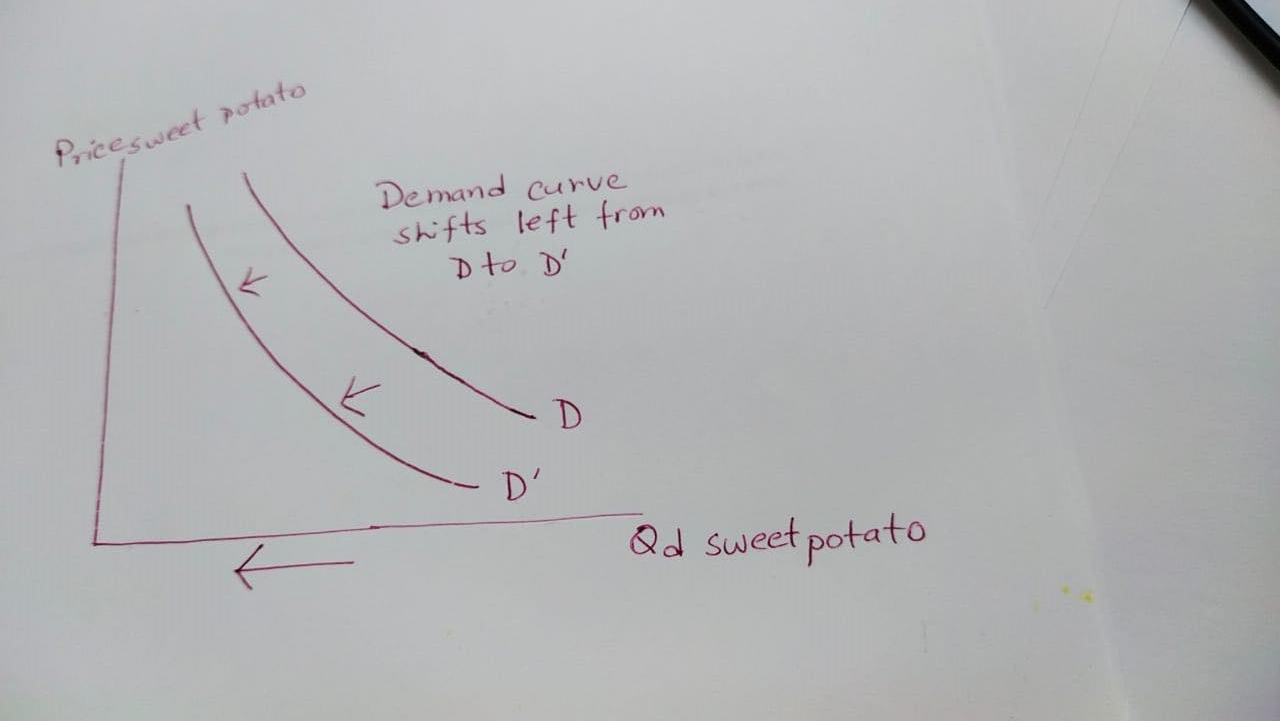 Price sweet potato
Demand curve
shifts left from
D to D'
D
D'
Qd sweet potato